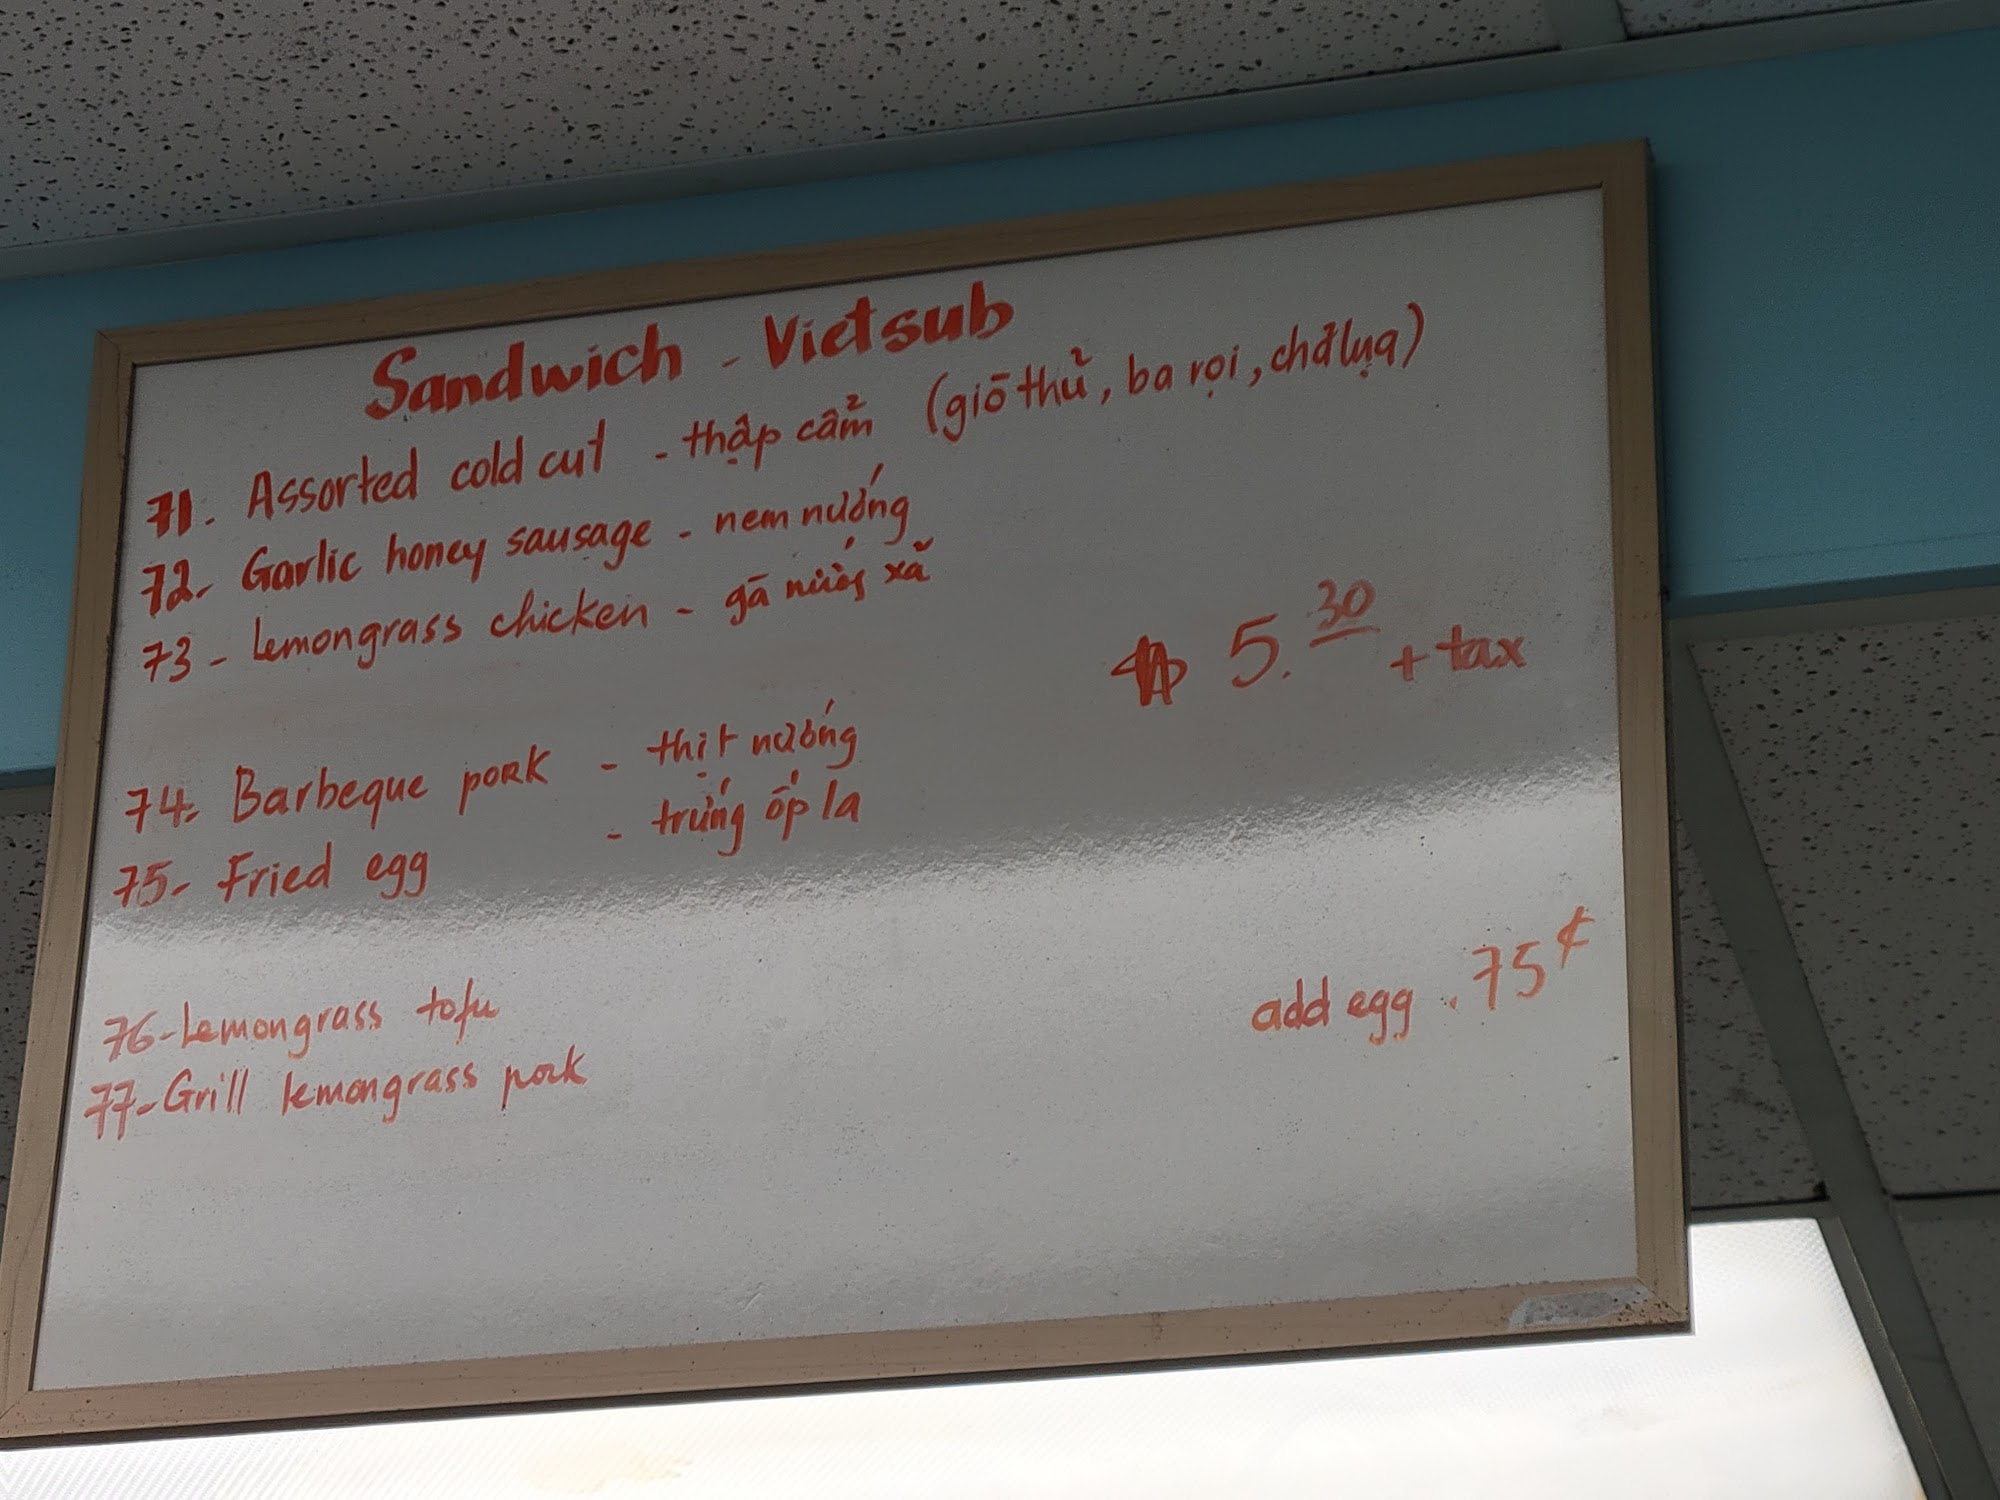 Sandwich - Vietsub
71. Assorted cold cut - thập cẩm (giò thủ, ba rọi, chả lụa)
72. Garlic honey sausage - nem nướng
73 - lemongrass chicken - gà nướng xả
$ 5.30 + tax
74. Barbeque pork - thịt nướng
75- Fried egg - trứng ốp la
76- Lemongrass tofu
add egg .75¢
77- Grill lemongrass pork